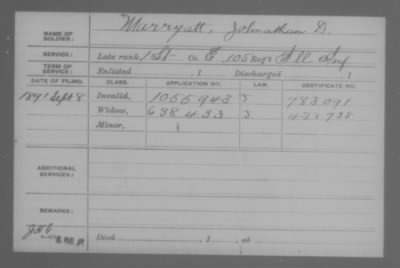 NAME OF SOLDIER: Marryatt, Johnathan D.
SERVICE: Late rank, 1st Co. E, 105 Reg't Ill Inf
TERM OF SERVICE: Enlisted , 1 Discharged , 1
DATE OF FILING. CLASS. APPLICATION NO. LAW. CERTIFICATE NO.
1891 Sept 8 Invalid, 1055.943 J 783.091
Widow, 638.433 J 438.738
Minor,
ADDITIONAL SERVICES:
REMARKS:
Died , 1 , at